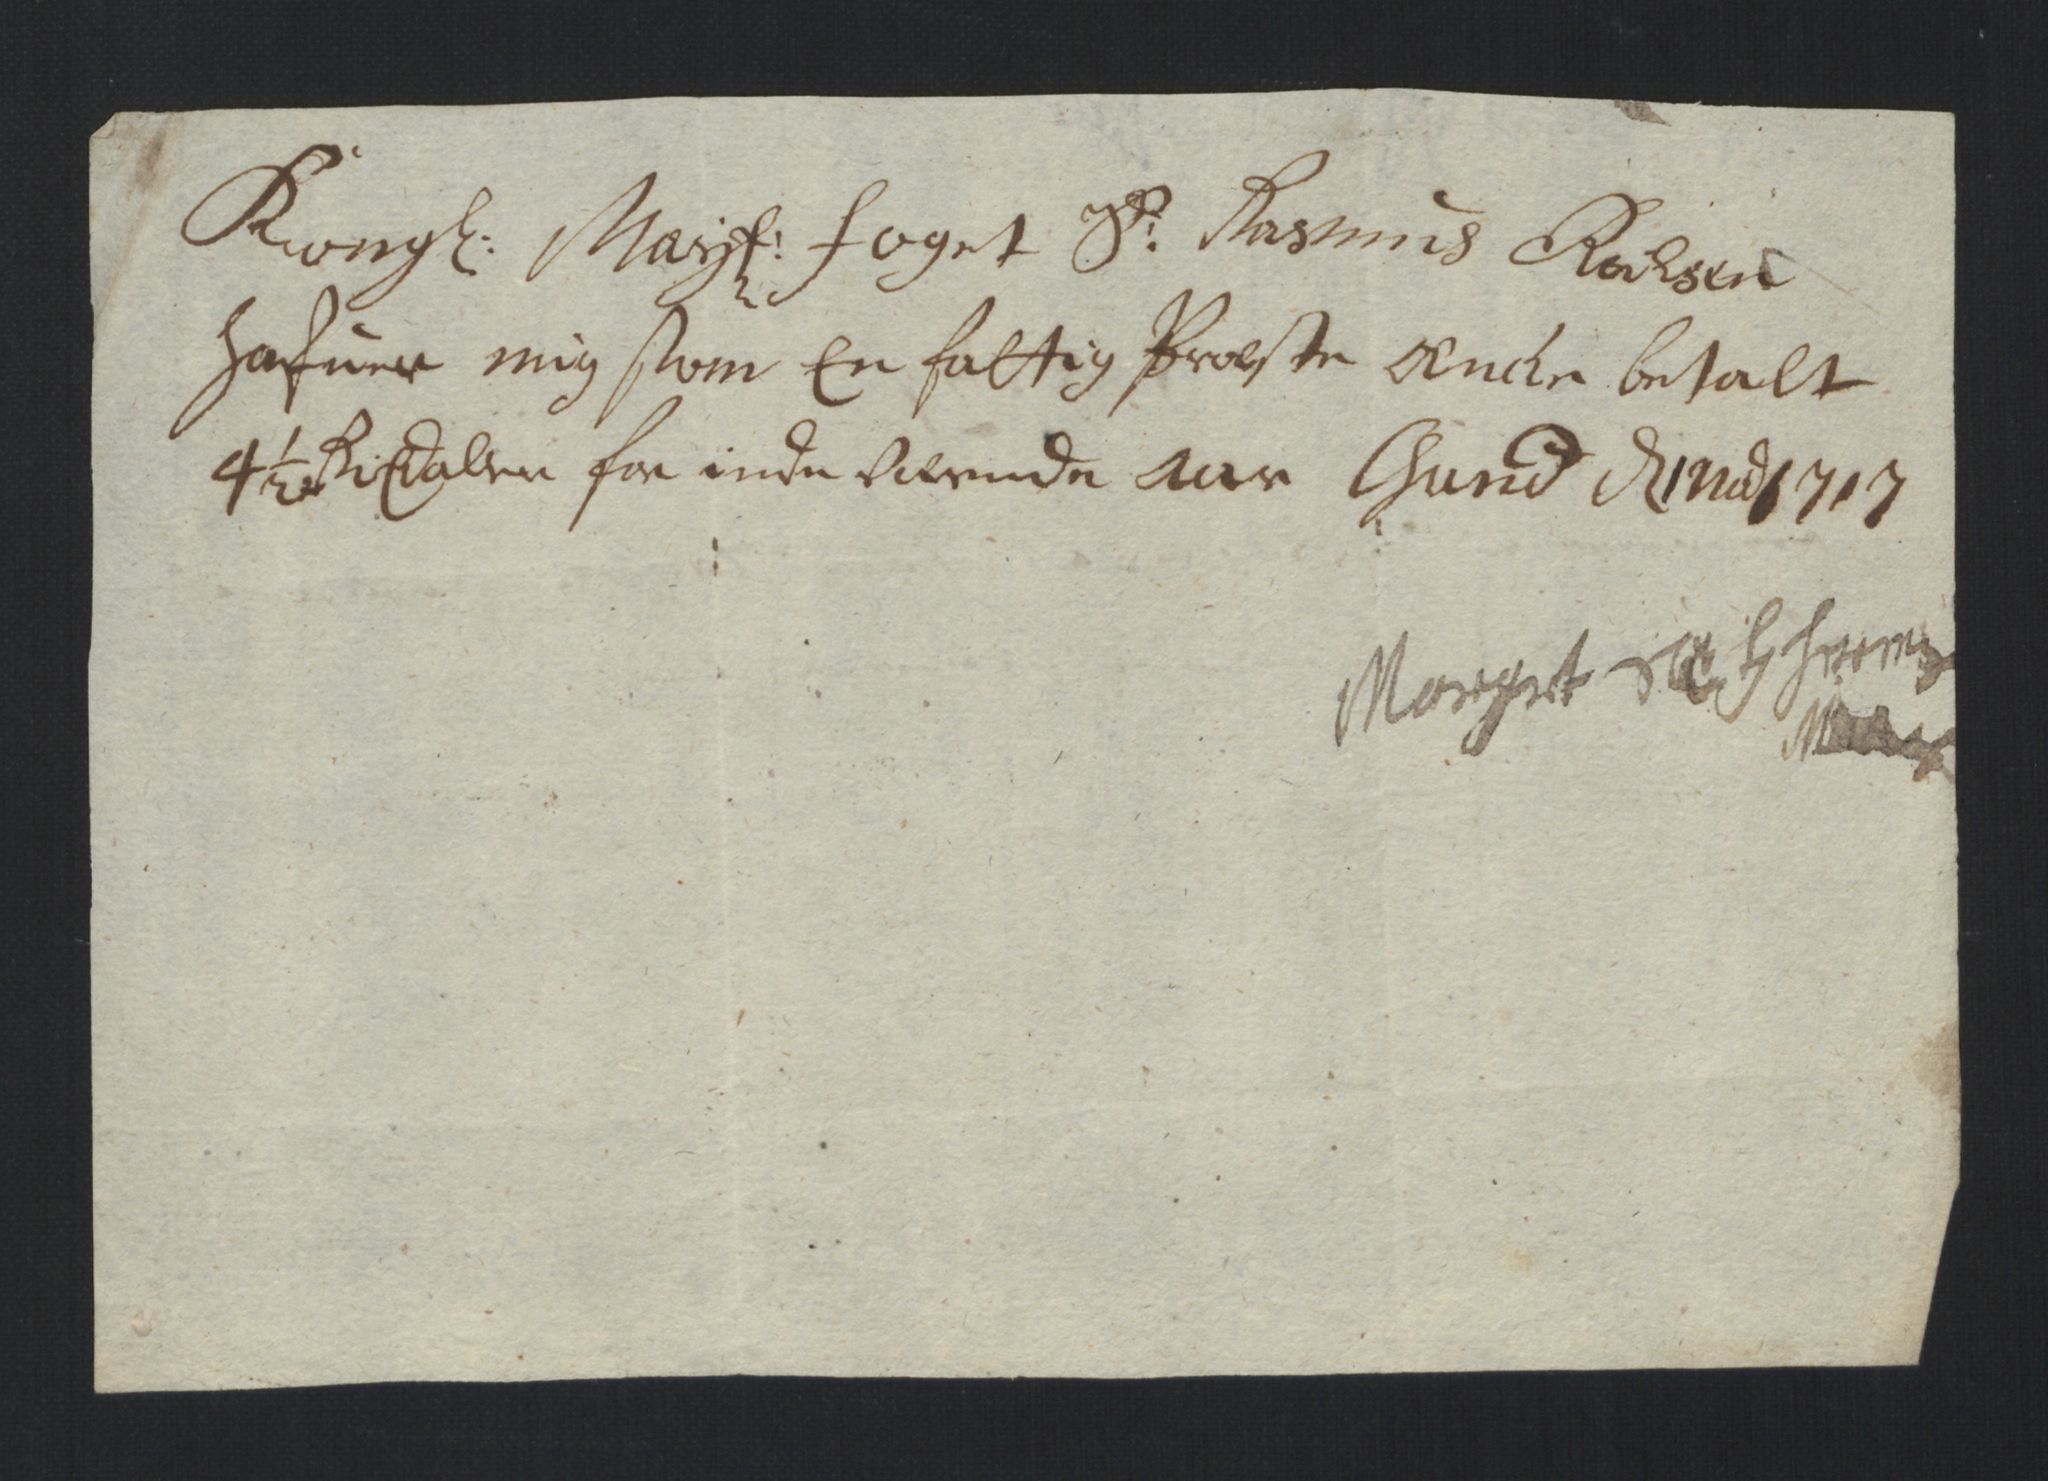 Kongl: Mayst: foget Sr. Rasmus Rachsen
hafuer mig som En fattig Præste Encke betalt
4½ Rixdaler for inde værende aar Gund d 1 1717
Margret